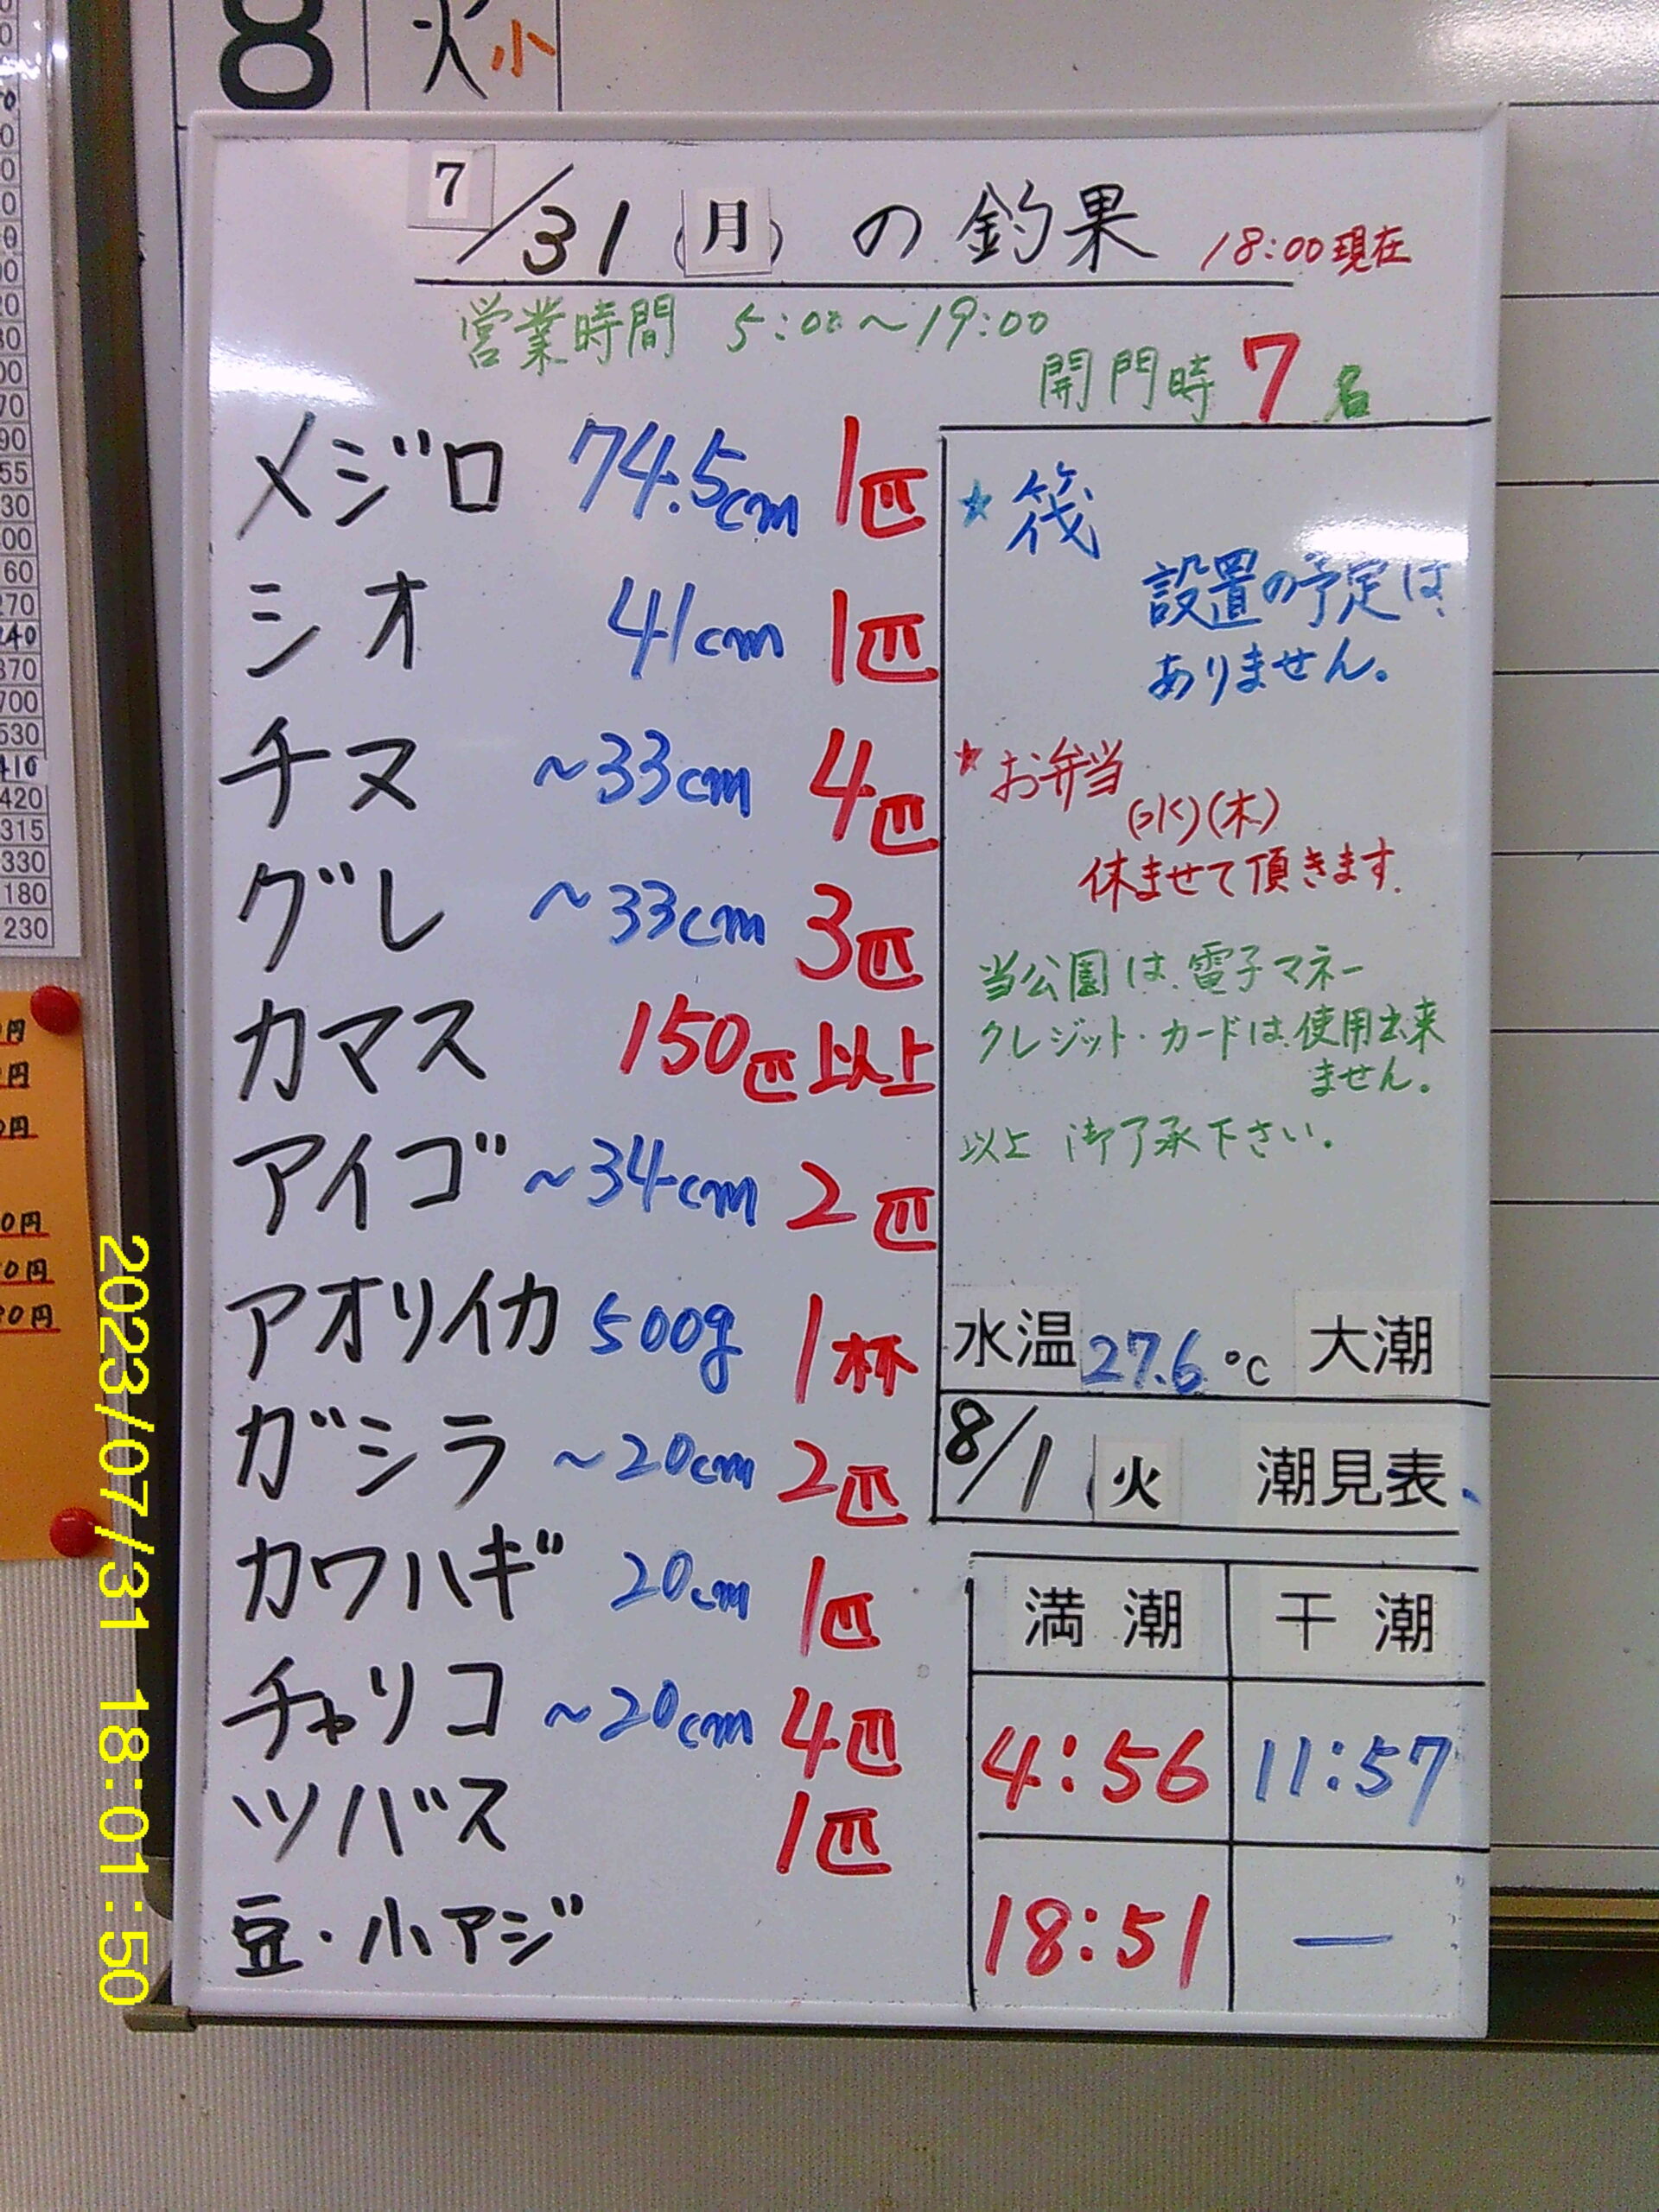 8 火 小
7/31(月)の釣果 18:00現在
営業時間 5:00~19:00
開門時 7名
メジロ 74.5cm 1匹
シオ 41cm 1匹
チヌ ~33cm 4匹
グレ ~33cm 3匹
カマス 150匹以上
アイゴ ~34cm 2匹
アオリイカ 500g 1杯
ガシラ ~20cm 2匹
カワハギ 20cm 1匹
チャリコ ~20cm 4匹
ツバス 1匹
豆・小アジ
★筏
設置の予定は
ありません。
★お弁当
(水)(木)
休ませて頂きます.
当公園は電子マネー
クレジット・カードは使用出来
ません。
以上 御了承下さい。
水温 27.6℃ 大潮
8/1(火 潮見表
満潮 干潮
4:56 11:57
18:51 —
2023/07/31 18:01:50
420
315
330
180
230